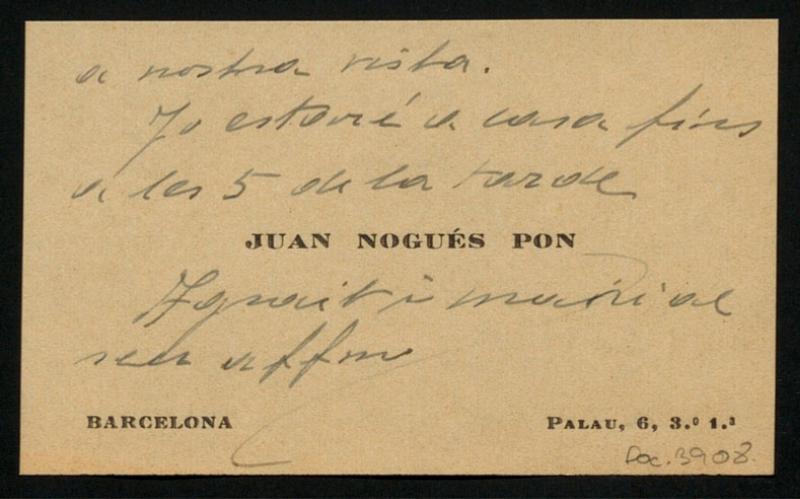 a nostra vista.
Jo estaré a casa fins
a les 5 de la tarde
JUAN NOGUÉS PON
Agrait i
seu affm
BARCELONA
PALAU, 6, 3.º 1.ª
Doc. 3908